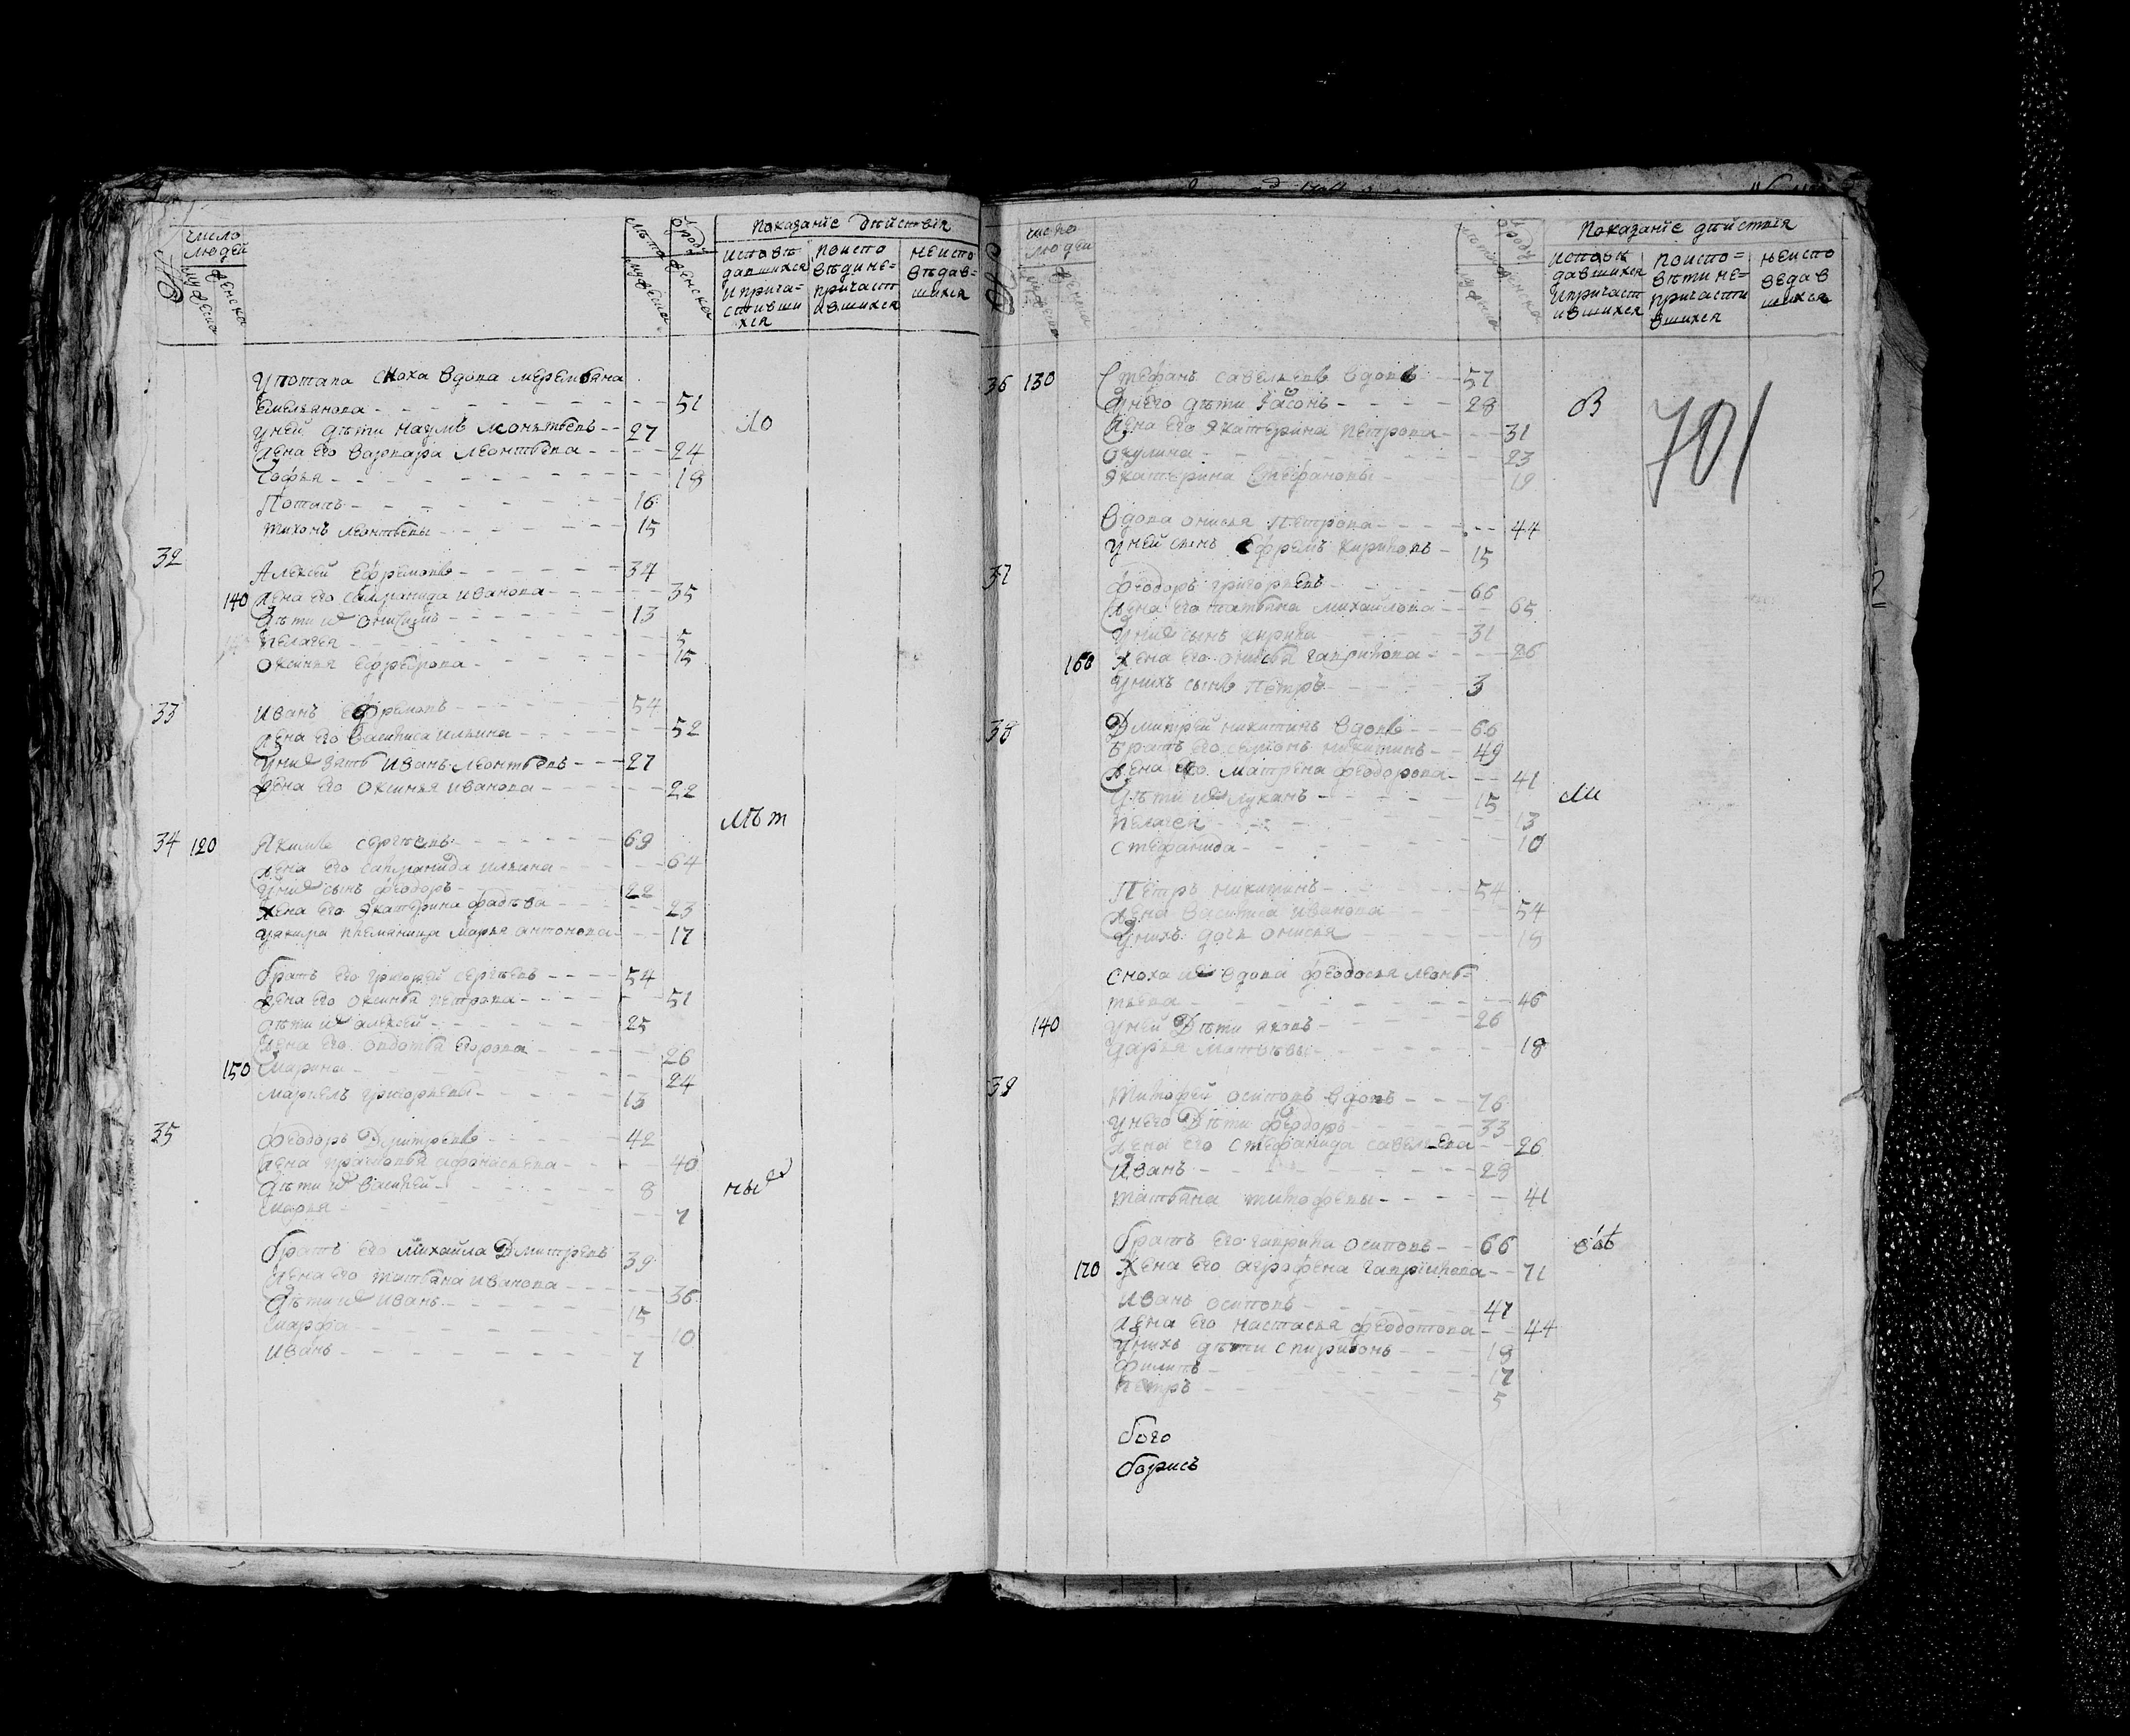 число людей
мужеска
женска
лѣта ѿ роду
мужеска
женска
Показание дѣйствія
исповѣ
давшихся
и прича=
стивши
хся
по испо
вѣди не=
причаст
ившихся
не испо
вѣдав=
шихся
У потапа сноха вдова
Емельянова - 51
у ней дѣти Наумъ Леонтьевъ - 27
жена его Варвара Леонтьева - 24
Софья - 18
Потапъ - 16
Тихонъ Леонтьевы - 15
ло
32 Алексей Ефремовъ - 34
140 жена его Иванова - 35
дѣти их Онисимъ - 13
Пелагея - 5
Оксинья - 15
33 Иванъ Ефремовъ - 54
жена его Василиса Ильина - 52
у них зять Иванъ Леонтьевъ - 27
жена его Оксинья Иванова - 22
лѣт
34 120 Якимъ Сергѣевъ - 69
жена его Ильина - 64
у них сынъ Феодоръ - 22
жена его Екатерина Фадѣева - 23
у Якима племяница Марья Антонова - 17
братъ его Григорей Сергѣевъ - 54
жена его Оксинья Петрова - 51
дѣти их Алексей - 25
жена его Авдотья Егорова - 26
150 Марина - 24
Григорьевы - 13
35 Феодоръ Дмитревъ - 42
жена Прасковья Афонасьева - 40
дѣти их Василей - 8
Марья - 7
ных
братъ его Михайла Дмитревъ - 39
жена его Татьяна Иванова - 36
дѣти их Иванъ - 15
Марфа - 10
Иванъ - 7
число
людей
мужеска
женска
лѣта ѿ роду
мужеска
женска
Показание дѣйствія
исповѣ
давшихся
и причаст
ившихся
по испо=
вѣти не=
причасти
вшихся
не испо
ведав
шихся
36 130 Стефанъ Савельевъ вдовъ - 57
у него дѣти - 28
жена его Екатерина Петрова - 31
Окулина - 23
Екатерина Стефановы - 19
в
701
вдова Онисья Петрова - 44
у ней сынъ Ефремъ - 15
37 Феодоръ Григорьевъ - 66
жена его Татьяна Михайлова - 65
у них сынъ - 31
160 жена его Онисья Гаврилова - 26
у нихъ сынъ Петръ - 3
38 Дмитрей Никитинъ вдовъ - 66
братъ его Никитинъ - 49
жена его Матрена Феодорова - 41
дѣти их - 15
Пелагея - 13
Стефанида - 10
ли
Петръ Никитинъ - 54
жена Василиса Иванова - 54
у нихъ дочь Онисья - 18
сноха их вдова Феодосья Леонь=
тьева - 46
140 у ней дѣти Яковъ - 26
Дарья - 18
39 Осиповъ вдовъ - 76
у него дѣти Феодоръ - 33
жена его Стефанида Савельева - 26
Иванъ - 28
Татьяна - 41
братъ его Гаврила Осиповъ - 66
170 жена его Агрофена Гаврилова - 71
Иванъ Осиповъ - 47
жена его Настасья Феодотова - 44
у нихъ дѣти Спиридонъ - 18
Филипъ - 17
Петръ - 5
бого
борисъ